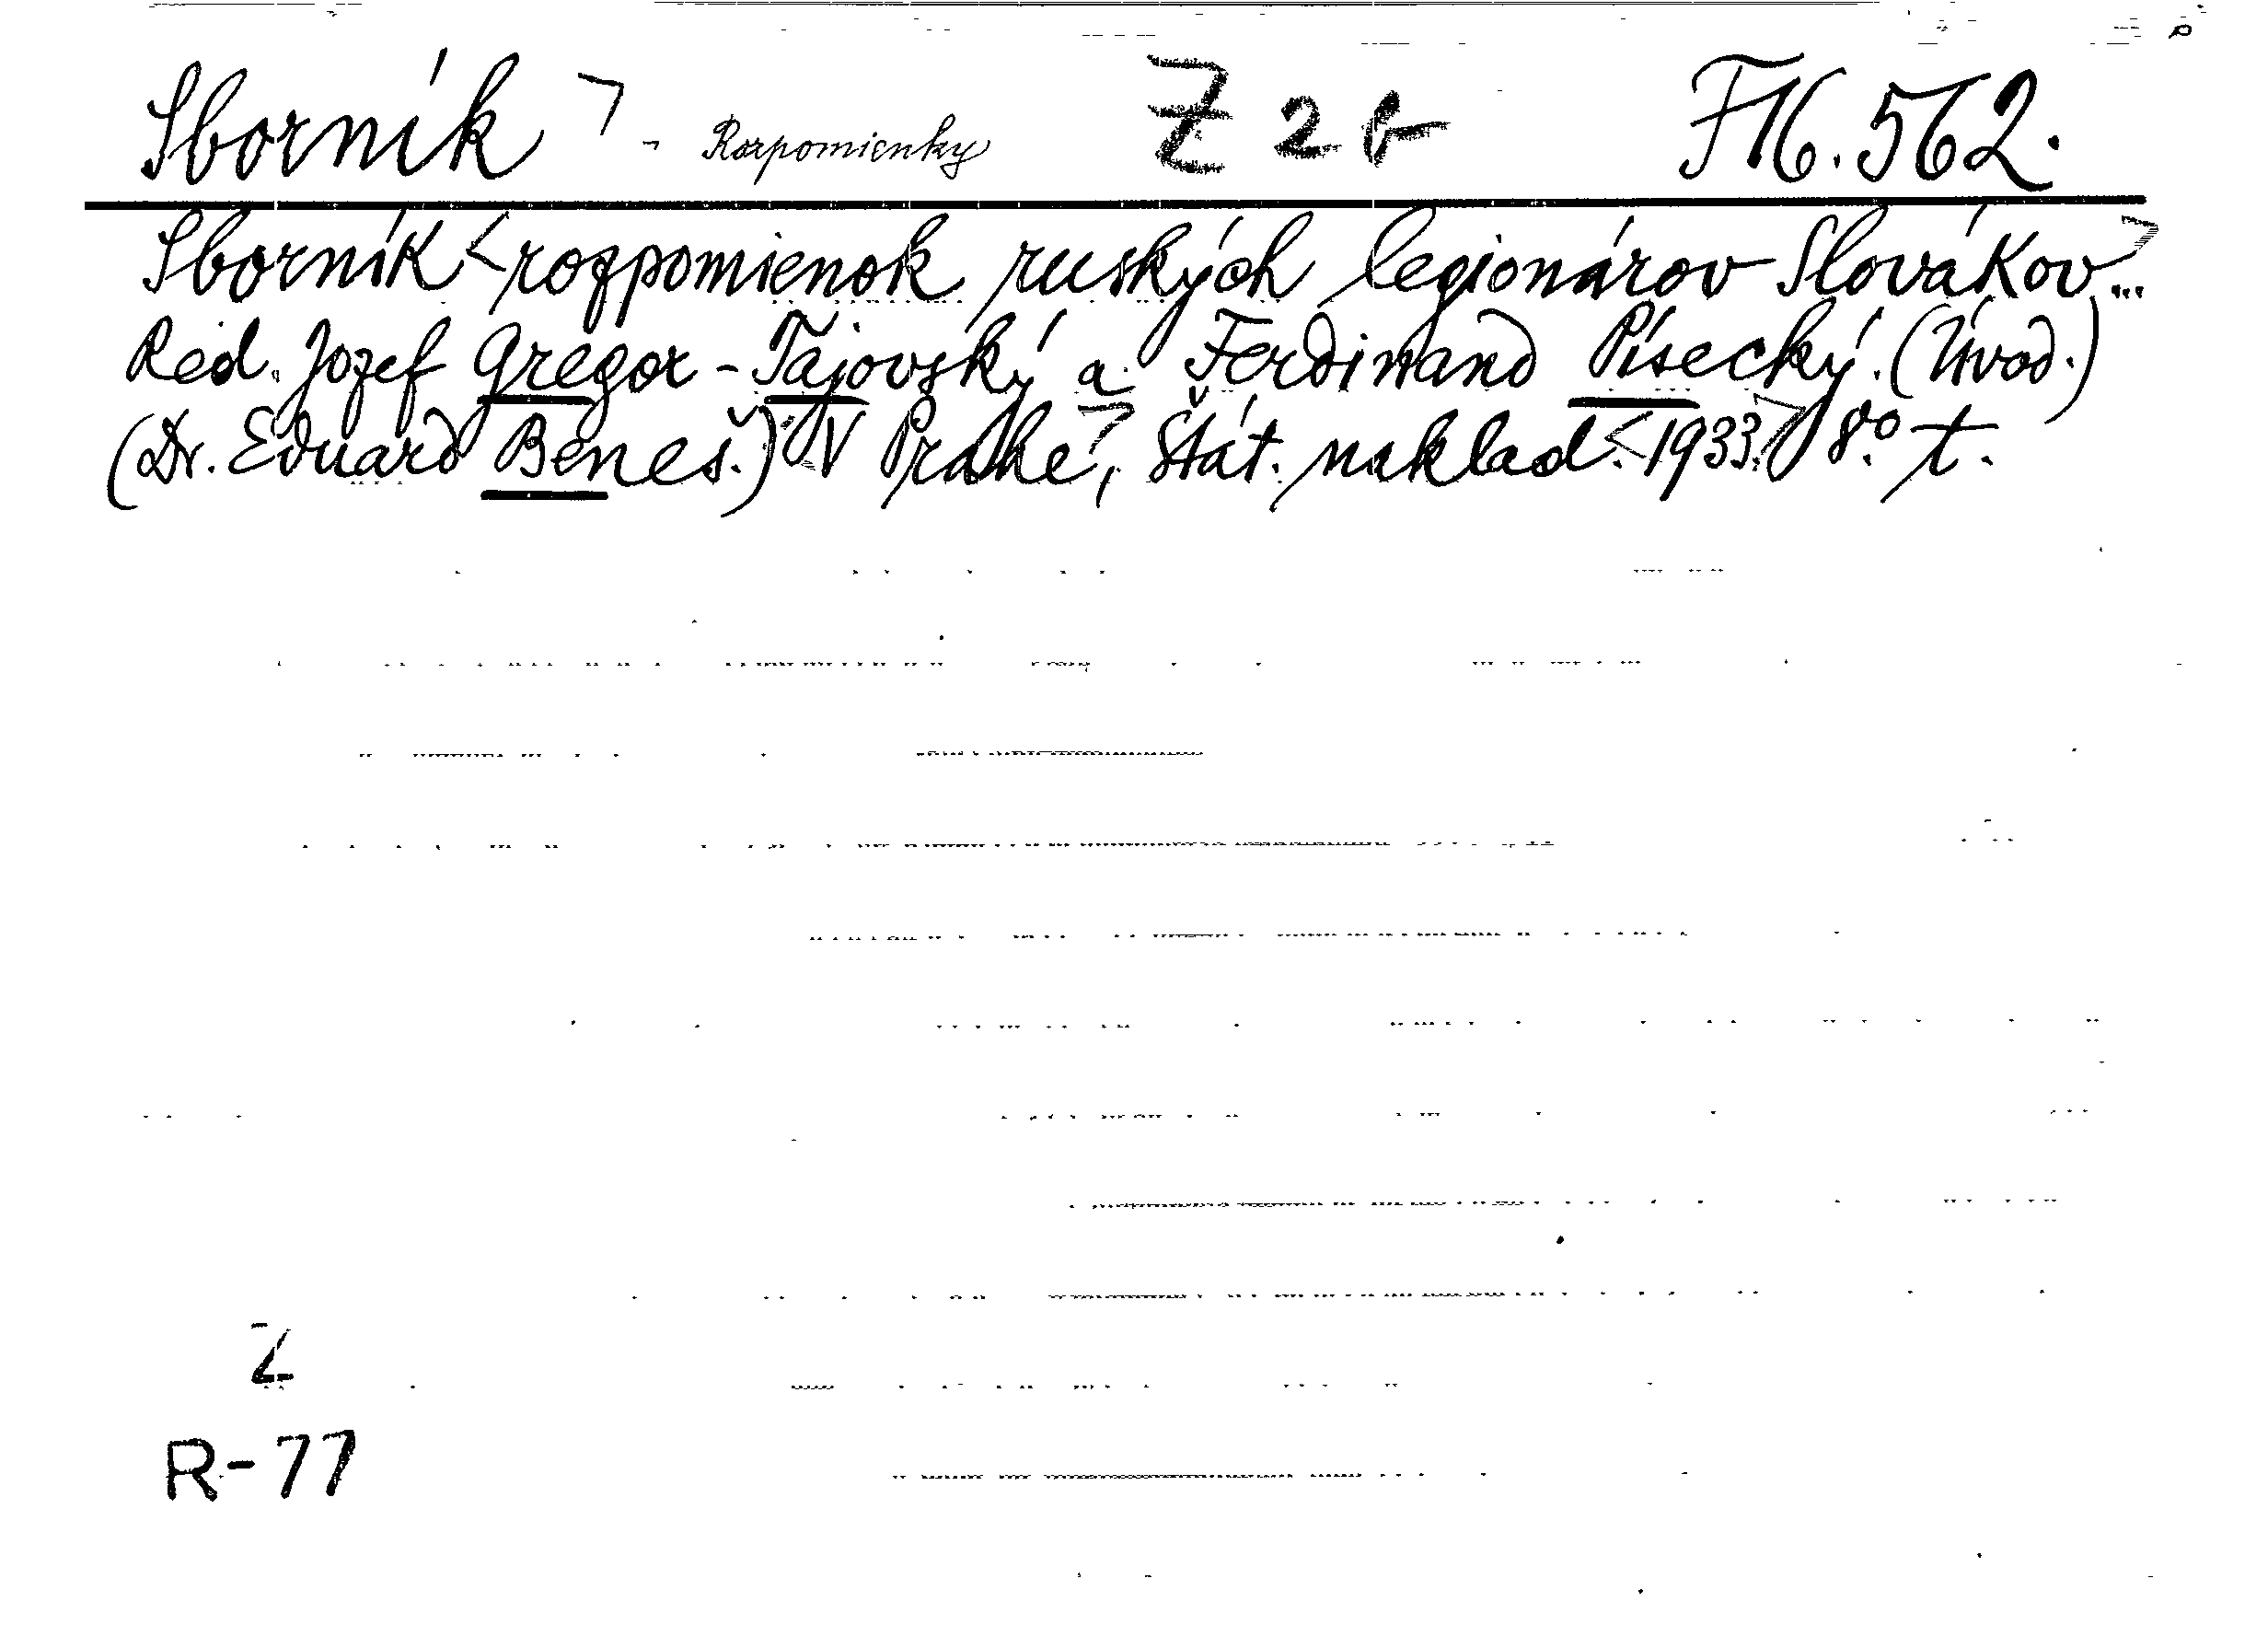 Sborník - Rozpomienky Z 2 b FM. 562.
Sborník rozpomienok ruských legionárov Slovákov...
Red. Jozef Gregor - Tajovský a Ferdinand Písecký. (Úvod.)
(Dr. Eduard Beneš.) V Prahe, Štát. naklad. 1933. 8° t.
Z
R-77